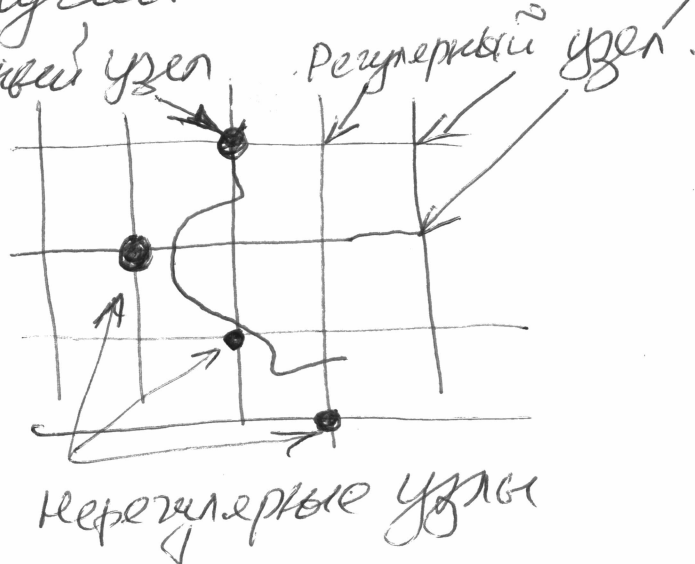 ный узел
Регулярный узел.
Нерегулярные узлы